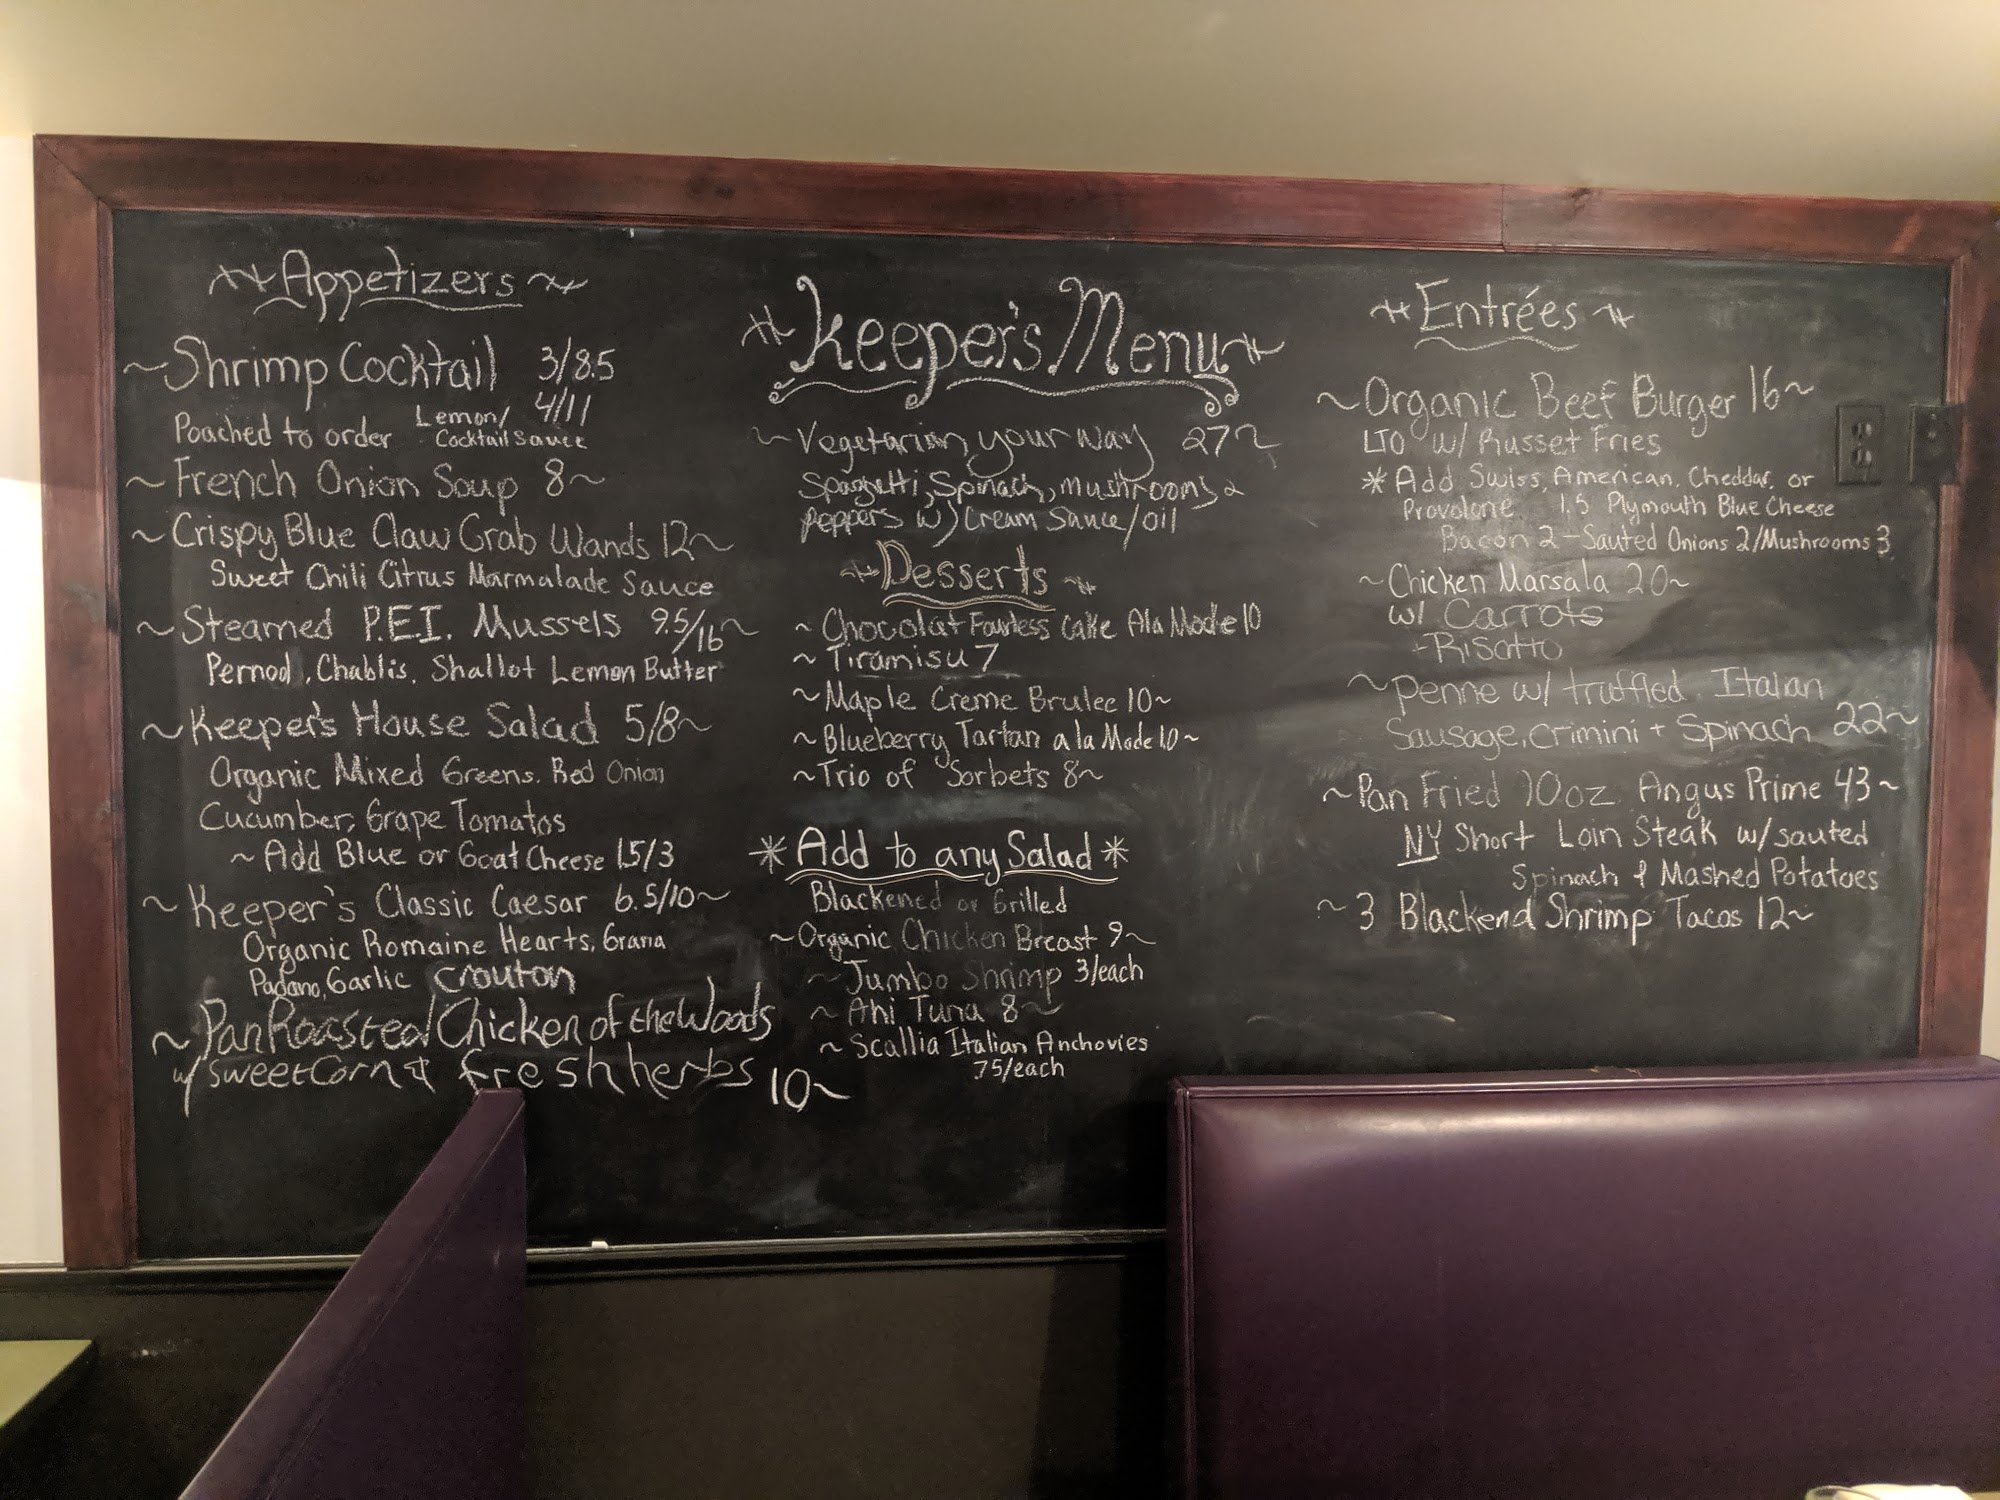 Appetizers
~Shrimp Cocktail 3/8.5
4/11
Poached to order Lemon/
Cocktail Sauce
~French Onion Soup 8~
~Crispy Blue Claw Crab Wands 12~
Sweet Chili Citrus Marmalade Sauce
~Steamed P.E.I. Mussels 9.5/16~
Pernod, Chablis, Shallot Lemon Butter
~Keeper's House Salad 5/8~
Organic Mixed Greens, Red Onion
Cucumber, Grape Tomatos
~Add Blue or Goat Cheese 1.5/3
~Keeper's Classic Caesar 6.5/10~
Organic Romaine Hearts, Grana
Padano, Garlic crouton
~Pan Roasted Chicken of the Woods
w/ sweet Corn & fresh herbs 10~
Keeper's Menu
~Vegetarian your way 27~
Spaghetti, Spinach, mushrooms &
peppers w/ Cream Sauce/oil
Desserts
~Chocolat Fourless Cake Ala Mode 10
~Tiramisu 7
~Maple Creme Brulee 10~
~Blueberry Tartan a la Mode 10~
~Trio of Sorbets 8~
*Add to any Salad*
Blackened or Grilled
~Organic Chicken Breast 9~
~Jumbo Shrimp 3/each
~Ahi Tuna 8~
~Scallia Italian Anchovies
.75/each
Entrées
~Organic Beef Burger 16~
LTO w/ Russet Fries
*Add Swiss, American, Cheddar, or
Provolone 1.5 Plymouth Blue Cheese
Bacon 2 - Sauted Onions 2/Mushrooms 3
~Chicken Marsala 20~
w/ Carrots
-Risotto
~penne w/ truffled Italian
Sausage, Crimini + Spinach 22~
~Pan Fried 10oz Angus Prime 43~
NY Short Loin Steak w/ sauted
Spinach & Mashed Potatoes
~3 Blackend Shrimp Tacos 12~